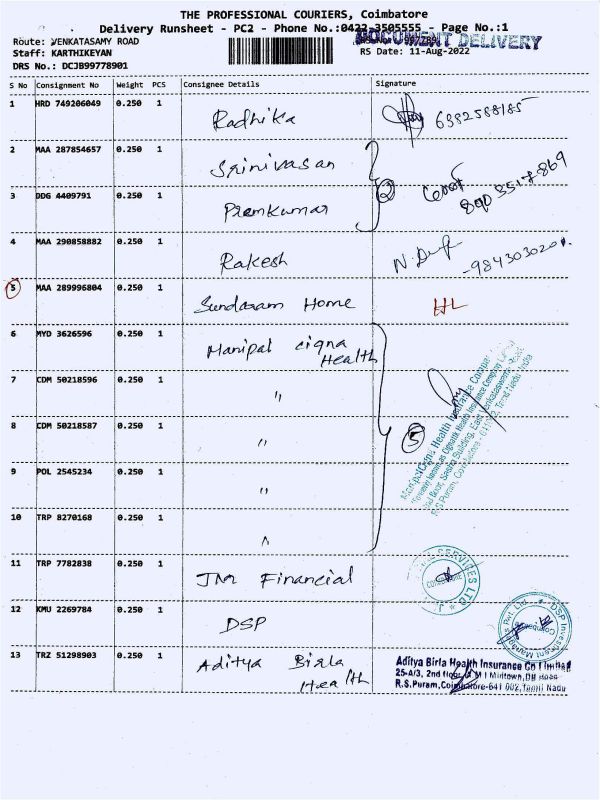 THE PROFESSIONAL COURIERS, Coimbatore
Delivery Runsheet - PC2 - Phone No.:0422-3505555 - Page No.:1
DOCUMENT DELIVERY
Route: VENKATASAMY ROAD
Staff: KARTHIKEYAN RS Date: 11-Aug-2022
DRS No.: DCJB99778901
S No Consignment No Weight PCS Consignee Details Signature
1 HRD 749206049 0.250 1 Radhika 6382588185
2 MAA 287854657 0.250 1 Srinivasan
3 DDG 4409791 0.250 1 Premkumar 2
4 MAA 290858882 0.250 1 Rakesh
5 MAA 289996804 0.250 1 Sundaram Home HL
6 MYD 3626596 0.250 1 Manipal cigna Health
7 CDM 50218596 0.250 1 "
8 CDM 50218587 0.250 1 " 5
9 POL 2545234 0.250 1 "
10 TRP 8270168 0.250 1 "
ManipalCigna Health Insurance Company
11 TRP 7782838 0.250 1 JM Financial
12 KMU 2269784 0.250 1 DSP
DSP Investment Managers Pvt. Ltd.
13 TRZ 51298903 0.250 1 Aditya Birla Health
Aditya Birla Health Insurance Co Limited
25-A/3, 2nd floor,
R.S.Puram, Coimbatore-641 002, Tamil Nadu